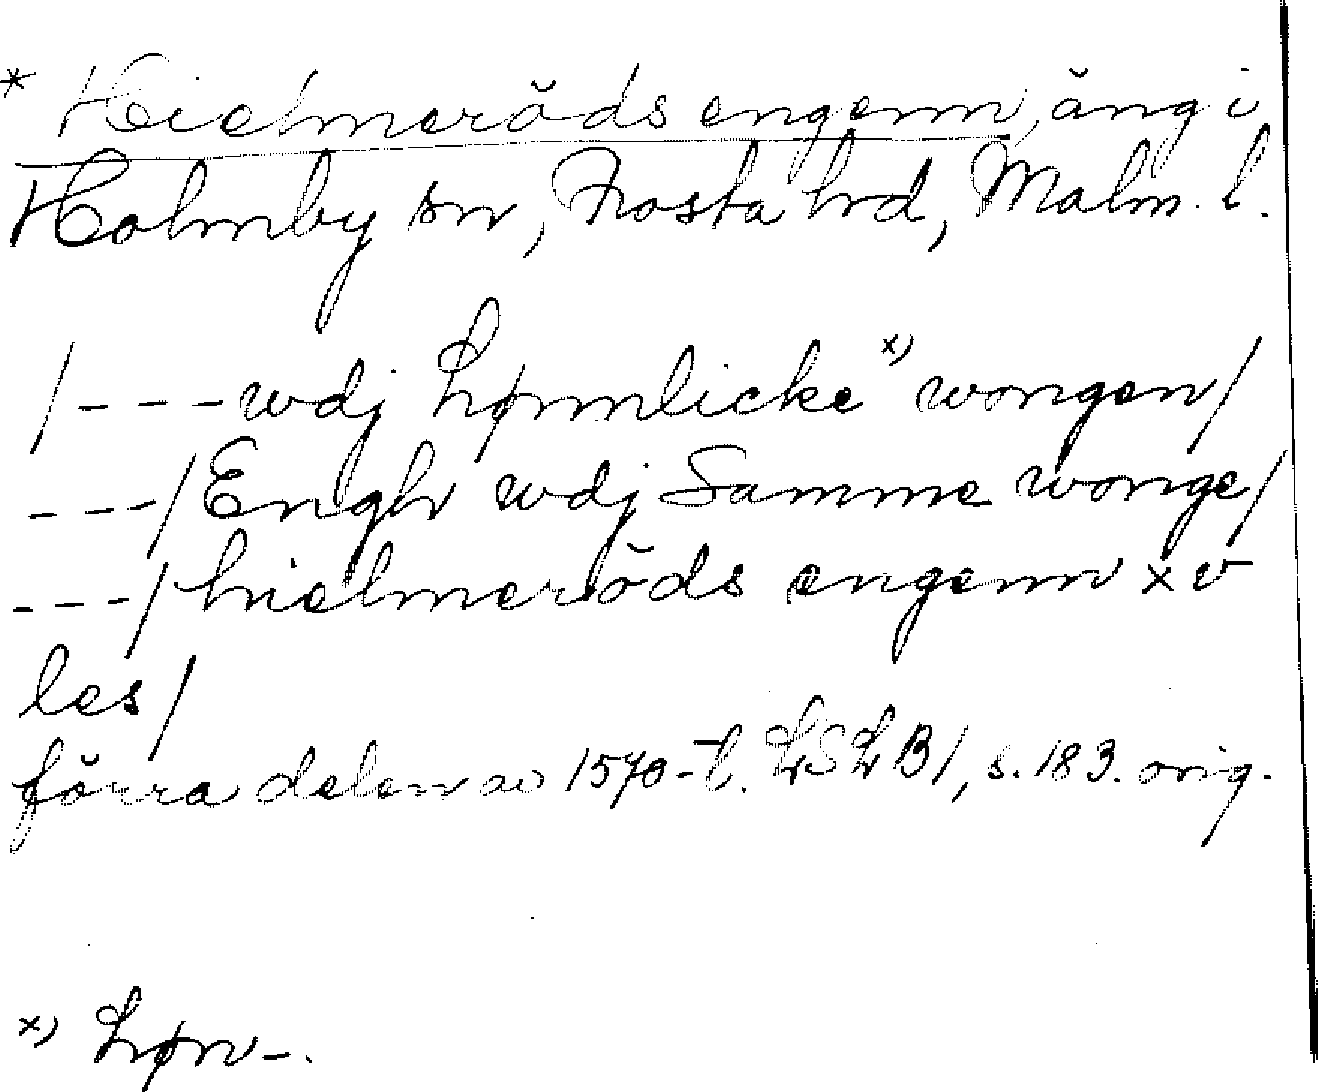 * Hielmeröds engenn, äng i
Holmby sn, Frosta hd, Malm. l.
/- - - wdj hømlicke x) wongen/
- - -/ Engh wdj Samme wonge/
- - -/ hielmeröds engenn x v
les/
förra delen av 1570-t. LSLB1, s. 183. orig.
x) høm-.